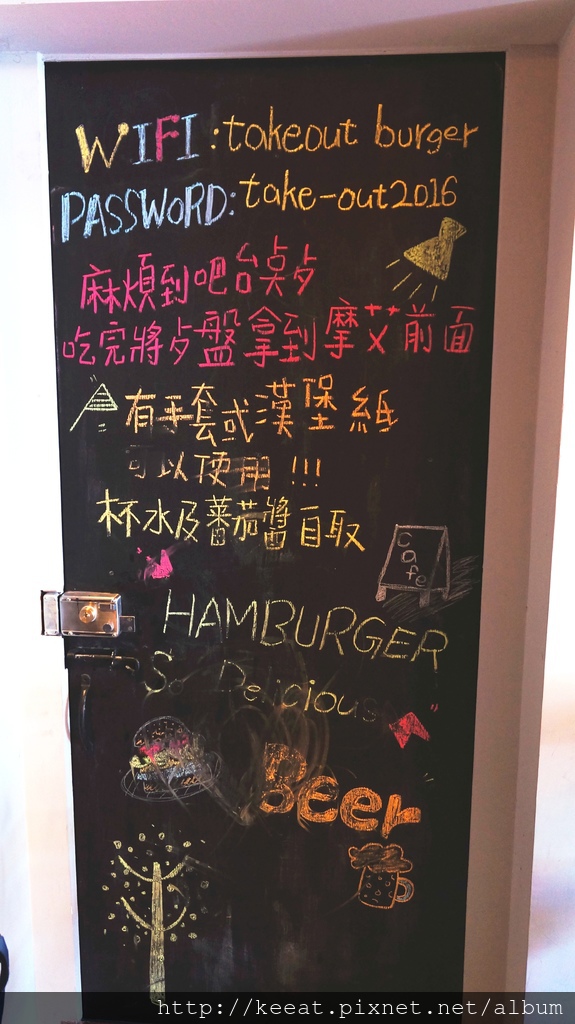 WIFI:takeout burger
PASSWORD:take-out2016
麻煩到吧台桌歺
吃完將歺盤拿到摩艾前面
有手套或漢堡紙
可以使用!!!
杯水及蕃茄醬自取
Cafe
HAMBURGER
So Delicious
Beer
http://keeat.pixnet.net/album